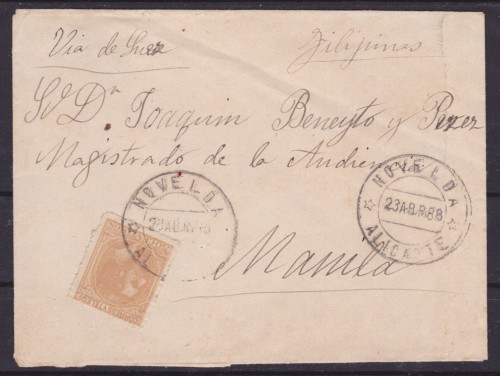 Via de Suez
Filipinas
Sr Dn Joaquim Beneyto y Perez
Magistrado de la Audiencia
Manila
NOVELDA
23 ABR. 88
ALICANTE
NOVELDA
23 ABR.